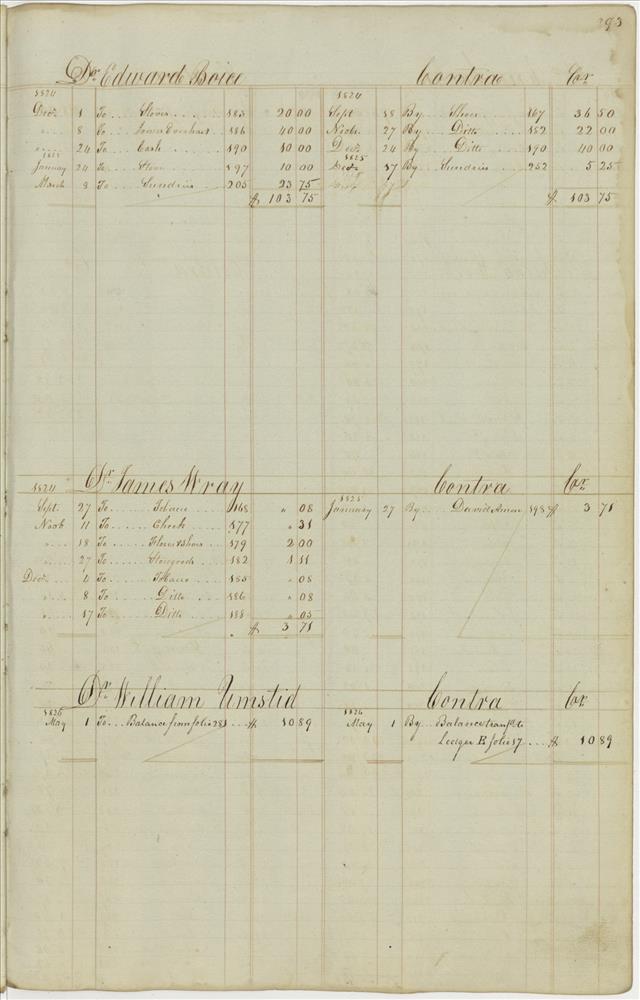 293
Dr Edward Boice Contra Cr
1824 1824
Decr. 1 To Stove 183 20 00 Sept 18 By Stove 167 36 50
" 8 To 186 40 00 Novbr. 27 By Ditto 182 22 00
" 24 To Cash 190 10 00 Decr. 24 By Ditto 190 40 00
1825 1825
January 24 To Stove 197 10 00 Decr. 17 By Sundries 252 5 25
March 3 To Sundries 205 23 75
$ 103 75 $ 103 75
Dr James Wray Contra Cr
1824 1825
Sept. 27 To Tobacco 168 " 08 January 27 By David 198 $ 3 71
Novb 11 To Check 177 " 31
" 18 To Flour & Shoes 179 2 00
" 27 To Storegoods 182 1 11
Decr. 6 To Tobacco 185 " 08
" 8 To Ditto 186 " 08
" 17 To Ditto 188 " 05
$ 3 71
Dr William Umstid Contra Cr
1826 1826
May 1 To Balance from folio 281 $ 10 89 May 1 By Balance transfd. to
Ledger E folio 17 $ 10 89